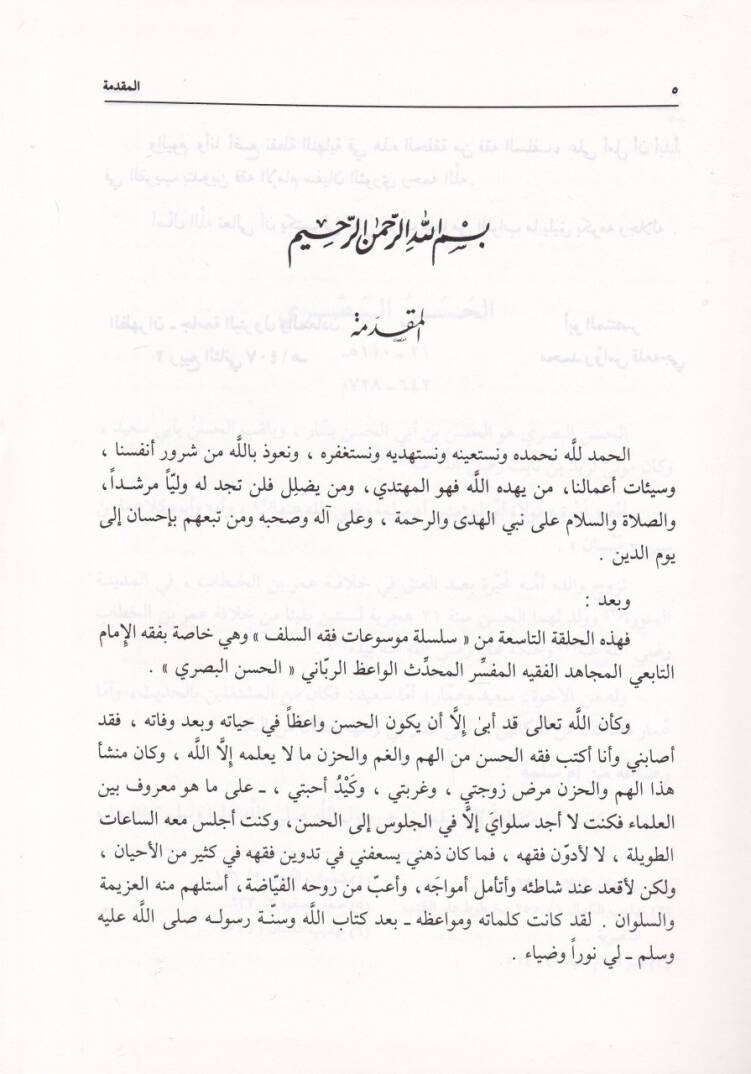 المقدمة ٥
بِسْمِ اللَّهِ الرَّحْمٰنِ الرَّحِيمِ
المقدمة
الحمد للَّه نحمده ونستعينه ونستهديه ونستغفره ، ونعوذ باللَّه من شرور أنفسنا ،
وسيئات أعمالنا، من يهده اللَّه فهو المهتدي، ومن يضلِل فلن تجد له وليّاً مرشداً،
والصلاة والسلام على نبي الهدى والرحمة ، وعلى آله وصحبه ومن تبعهم بإحسان إلى
يوم الدين .
وبعد :
فهذه الحلقة التاسعة من « سلسلة موسوعات فقه السلف » وهي خاصة بفقه الإمام
التابعي المجاهد الفقيه المفسِّر المحدِّث الواعظ الربّاني « الحسن البصري » .
وكأن اللَّه تعالى قد أبىٰ إلَّا أن يكون الحسن واعظاً في حياته وبعد وفاته ، فقد
أصابني وأنا أكتب فقه الحسن من الهم والغم والحزن ما لا يعلمه إلَّا اللَّه ، وكان منشأ
هذا الهم والحزن مرض زوجتي ، وغربتي ، وكَيْدُ أحبتي ، ـ على ما هو معروف بين
العلماء فكنت لا أجد سلوايَ إلَّا في الجلوس إلى الحسن، وكنت أجلس معه الساعات
الطويلة ، لا لأدوّن فقهه ، فما كان ذهني يسعفني في تدوين فقهه في كثير من الأحيان ،
ولكن لأقعد عند شاطئه وأتأمل أمواجَه، وأعبّ من روحه الفيّاضة، أستلهم منه العزيمة
والسلوان . لقد كانت كلماته ومواعظه ـ بعد كتاب اللَّه وسنّة رسوله صلى اللَّه عليه
وسلم ـ لي نوراً وضياء .